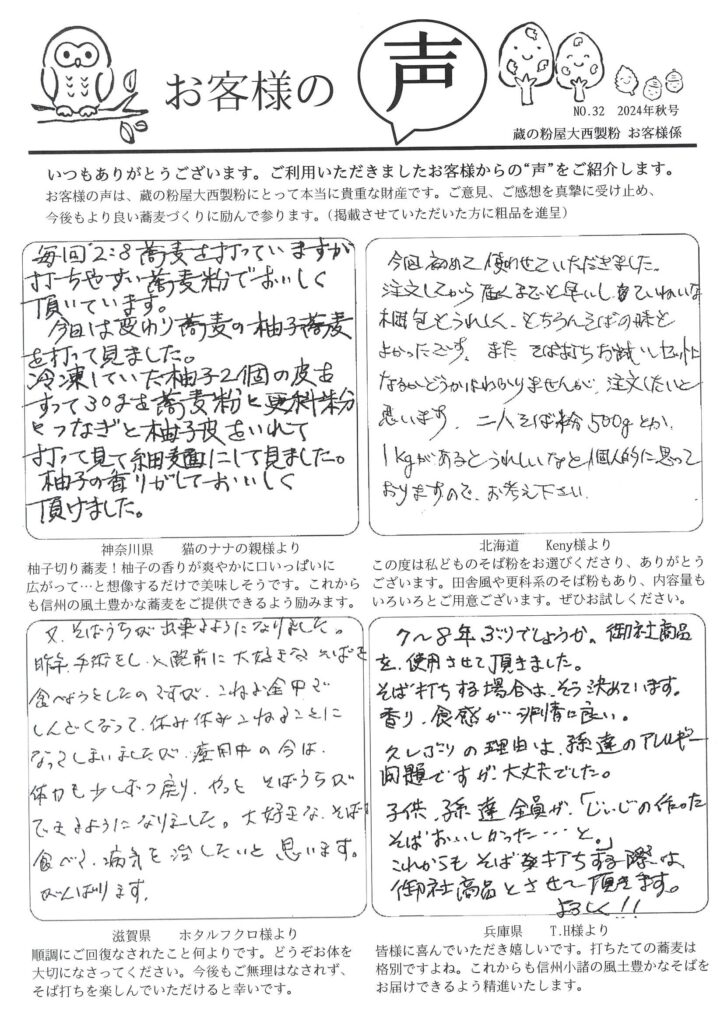 お客様の声
NO.32 2024年秋号
蔵の粉屋大西製粉 お客様係
いつもありがとうございます。ご利用いただきましたお客様からの“声”をご紹介します。
お客様の声は、蔵の粉屋大西製粉にとって本当に貴重な財産です。ご意見、ご感想を真摯に受け止め、
今後もより良い蕎麦づくりに励んで参ります。（掲載させていただいた方に粗品を進呈）
毎回2:8蕎麦を打っていますが
打ちやすい蕎麦粉でおいしく
頂いています。
今回は変わり蕎麦の柚子蕎麦
を打って見ました。
冷凍していた柚子2個の皮を
すって30gを蕎麦粉と更科粉
とつなぎと柚子皮をいれて
打って見て細麺にして見ました。
柚子の香りがしておいしく
頂けました。
神奈川県 猫のナナの親様より
柚子切り蕎麦！柚子の香りが爽やかに口いっぱいに
広がって…と想像するだけで美味しそうです。これから
も信州の風土豊かな蕎麦をご提供できるよう励みます。
今回初めて使わせていただきました。
注文してから届くまでも早いし、ていねいな
梱包もうれしく、もちろんそばの味も
よかったです。また そば打ちお試しセットに
なるかどうかはわかりませんが、注文したいと
思います。二八そば粉500gとか、
1kgがあるとうれしいなと個人的に思って
おりますので、お考え下さい。
北海道 Keny様より
この度は私どものそば粉をお選びくださり、ありがとう
ございます。田舎風や更科系のそば粉もあり、内容量も
いろいろとご用意ございます。ぜひお試しください。
又、そばうちが出来るようになりました。
昨年、手術をし、入院前に大好きなそばを
食べようとしたのですが、こねる途中で
しんどくなって、休み休みこねることに
なってしまいましたが、療用中の今は、
体力も少しずつ戻り、やっと そばうちが
できるようになりました。大好きな、そば
食べて、病気を治したいと思います。
がんばります。
滋賀県 ホタルフクロ様より
順調にご回復なされたこと何よりです。どうぞお体を
大切になさってください。今後もご無理はなされず、
そば打ちを楽しんでいただけると幸いです。
7〜8年ぶりでしょうか。御社商品
を、使用させて頂きました。
そば打ちする場合は、そう決めています。
香り、食感が非常に良い。
久しぶりの理由は、孫達のアレルギー
問題ですが、大丈夫でした。
子供、孫達全員が、「じいじの作った
そばおいしかった……と。」
これからもそば打ちする際は、
御社商品とさせて頂きます。
よろしく!!
兵庫県 T.H様より
皆様に喜んでいただき嬉しいです。打ちたての蕎麦は
格別ですよね。これからも信州小諸の風土豊かなそばを
お届けできるよう精進いたします。